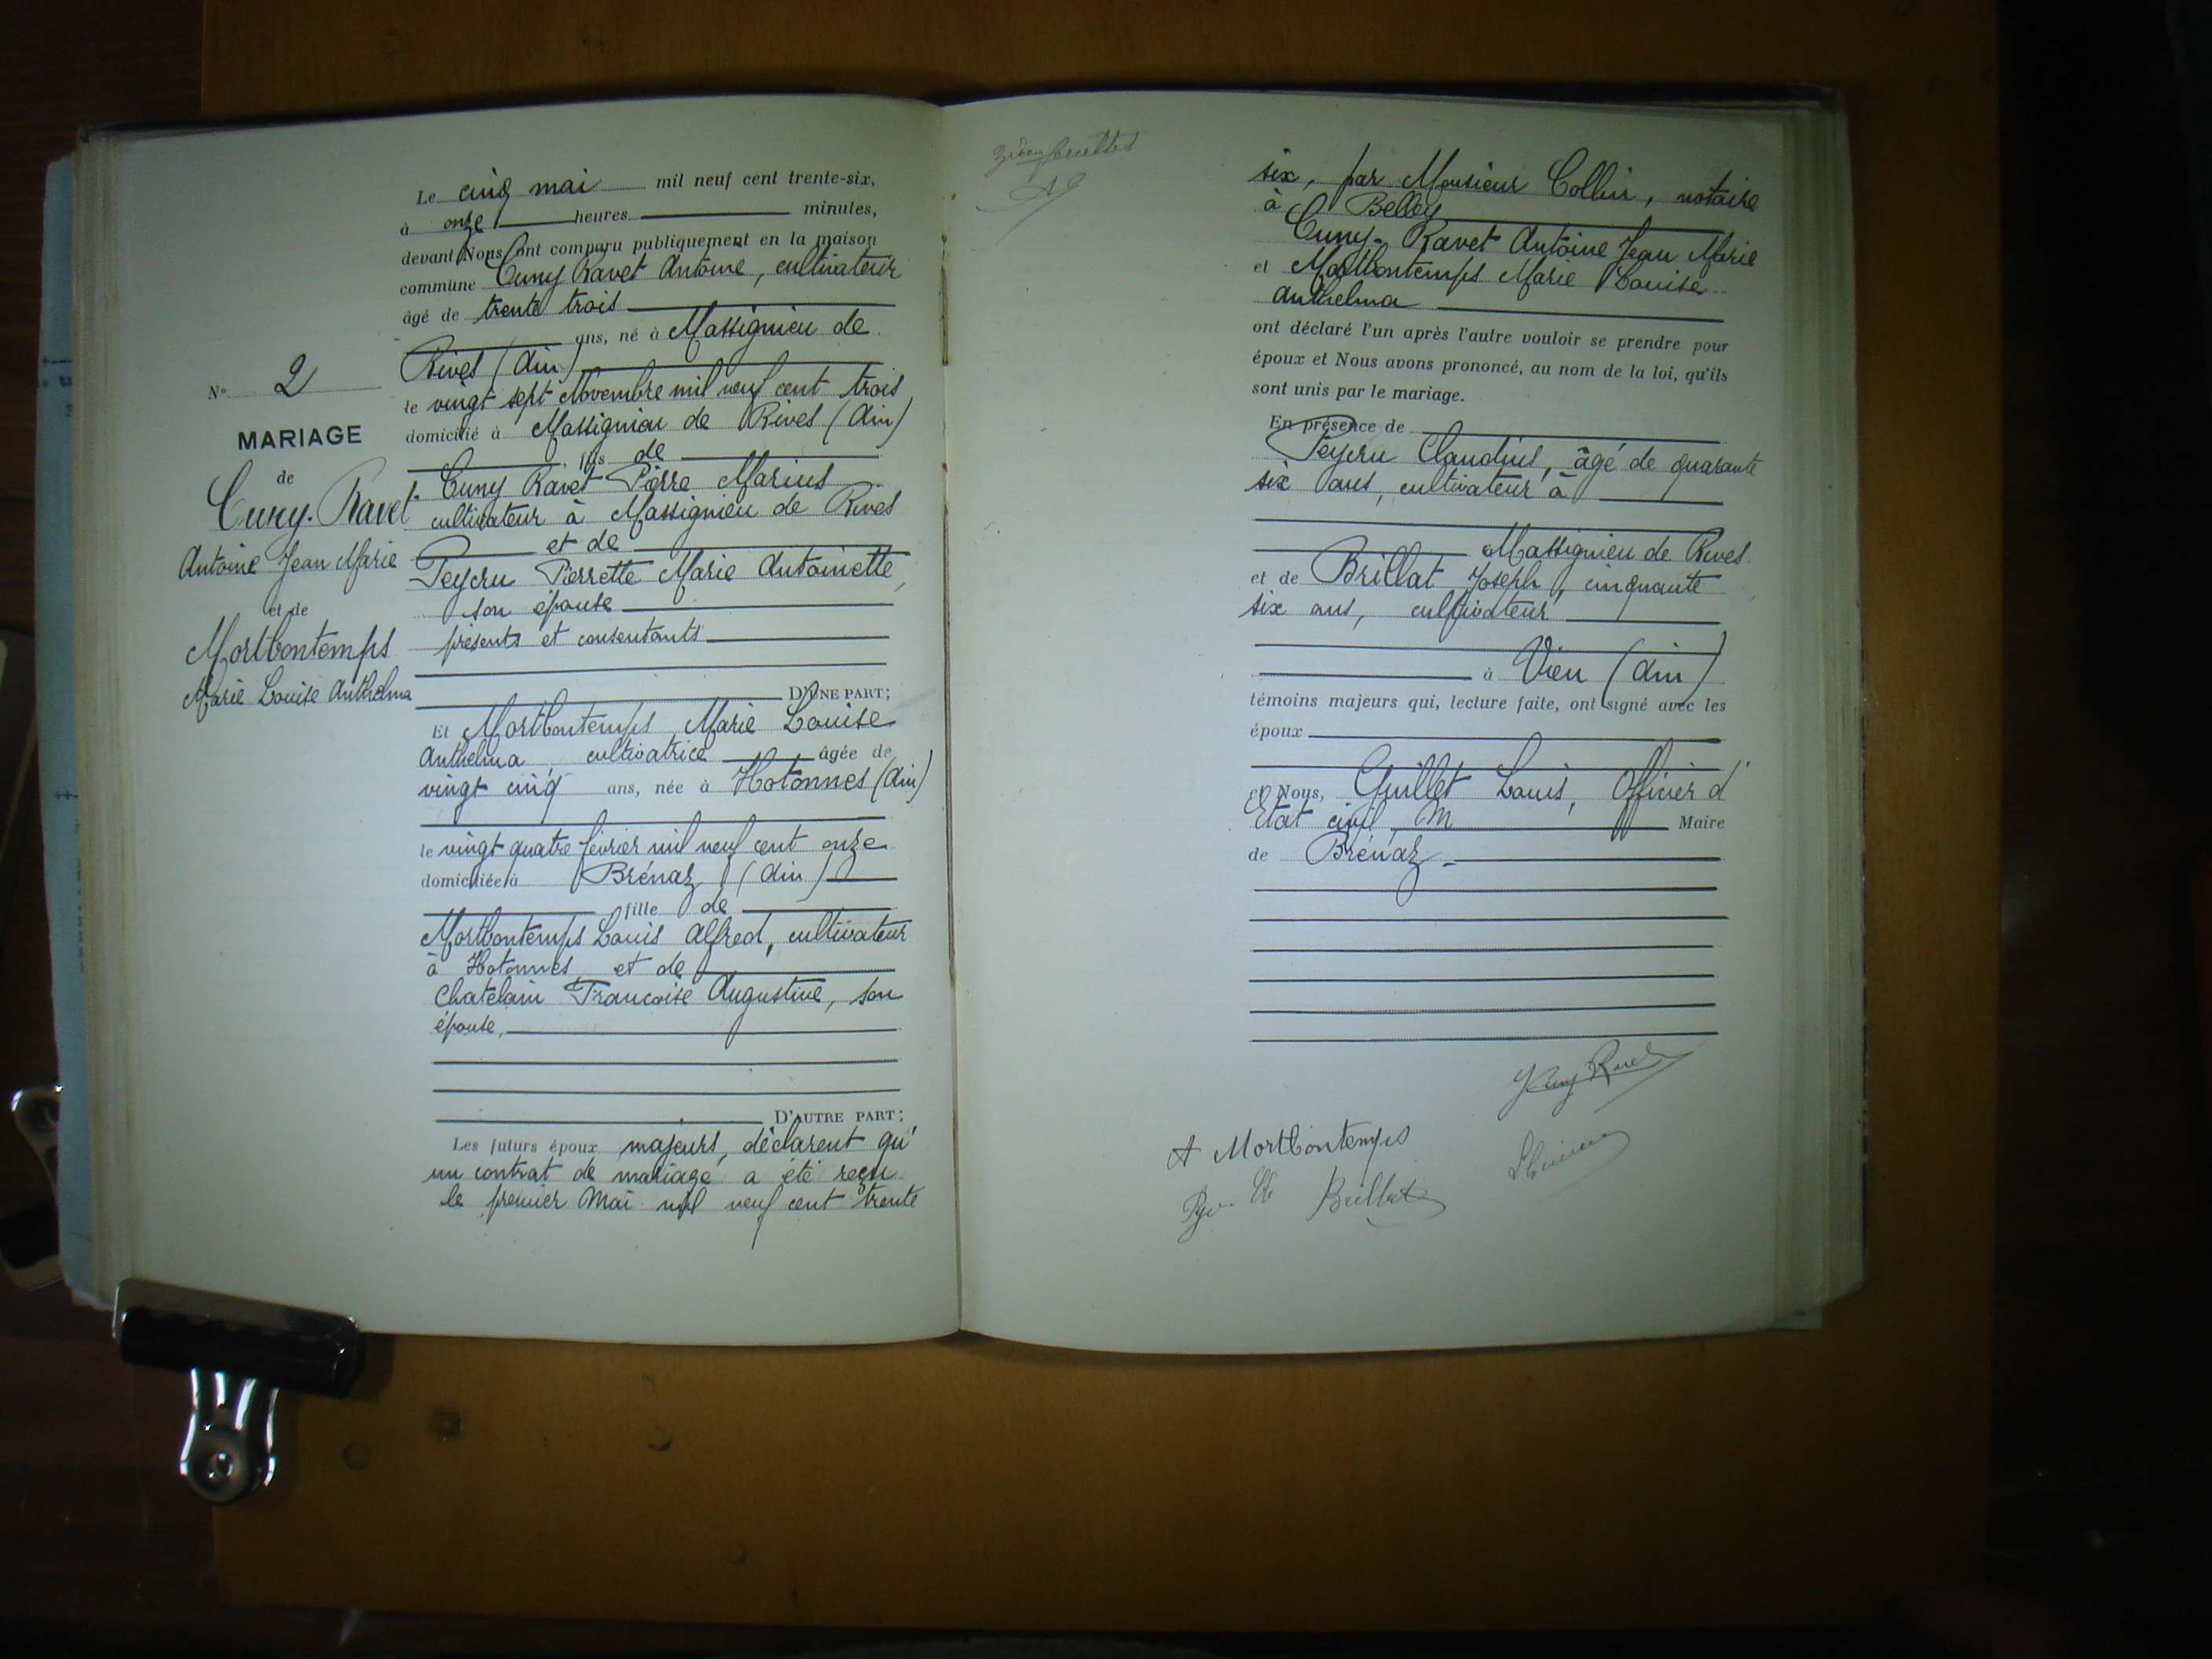 Le cinq mai mil neuf cent trente-six,
à onze heures minutes,
devant Nous ont comparu publiquement en la maison
commune Cuny Ravet Antoine, cultivateur
âgé de trente trois
ans, né à Massignieu de
Rives (Ain)
le vingt sept Novembre mil neuf cent trois
domicilié à Massignieu de Rives (Ain)
fils de
Cuny Ravet Pierre Marius
cultivateur à Massignieu de Rives
et de
Peycru Pierrette Marie Antoinette,
son épouse
présents et consentants
D'UNE PART;
Et Mortbontemps Marie Louise
Anthelma, cultivatrice âgée de
vingt cinq ans, née à Hotonnes (Ain)
le vingt quatre février mil neuf cent onze
domiciliée à Brénaz (Ain)
fille de
Mortbontemps Louis Alfred, cultivateur
à Hotonnes et de
Chatelain Francoise Augustine, son
épouse,
D'AUTRE PART;
Les futurs époux majeurs, déclarent qu'
un contrat de mariage a été reçu
le premier Mai mil neuf cent trente
N° 2
MARIAGE
de
Cuny-Ravet
Antoine Jean Marie
et de
Mortbontemps
Marie Louise Anthelma
six, par Monsieur Collin, notaire
à Belley
Cuny-Ravet Antoine Jean Marie
et Mortbontemps Marie Louise
Anthelma
ont déclaré l'un après l'autre vouloir se prendre pour
époux et Nous avons prononcé, au nom de la loi, qu'ils
sont unis par le mariage.
En présence de
Peycru Claudius, âgé de quarante
six ans, cultivateur à
Massignieu de Rives
et de Brillat Joseph, cinquante
six ans, cultivateur
à Vieu (Ain)
témoins majeurs qui, lecture faite, ont signé avec les
époux
et Nous, Guillet Louis, Officier d'
Etat civil, M Maire
de Brénaz
A Mortbontemps
Brillat